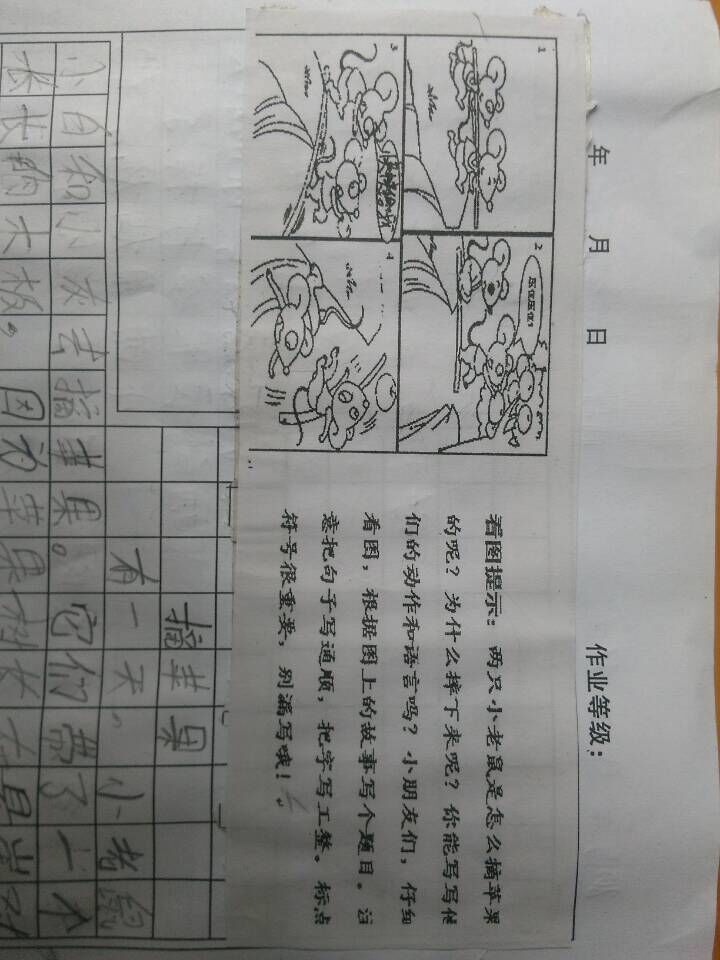 年 月 日 作业等级：
1
2
3
4
看图提示：两只小老鼠是怎么摘苹果
的呢？为什么摔下来呢？你能写写他
们的动作和语言吗？小朋友们，仔细
看图，根据图上的故事写个题目。注
意把句子写通顺，把字写工整。标点
符号很重要，别漏写哦！
摘苹果
有一天，小老鼠
小白和小灰去摘苹果。它们带了一个
米长的木板。因为苹果树长在悬崖对